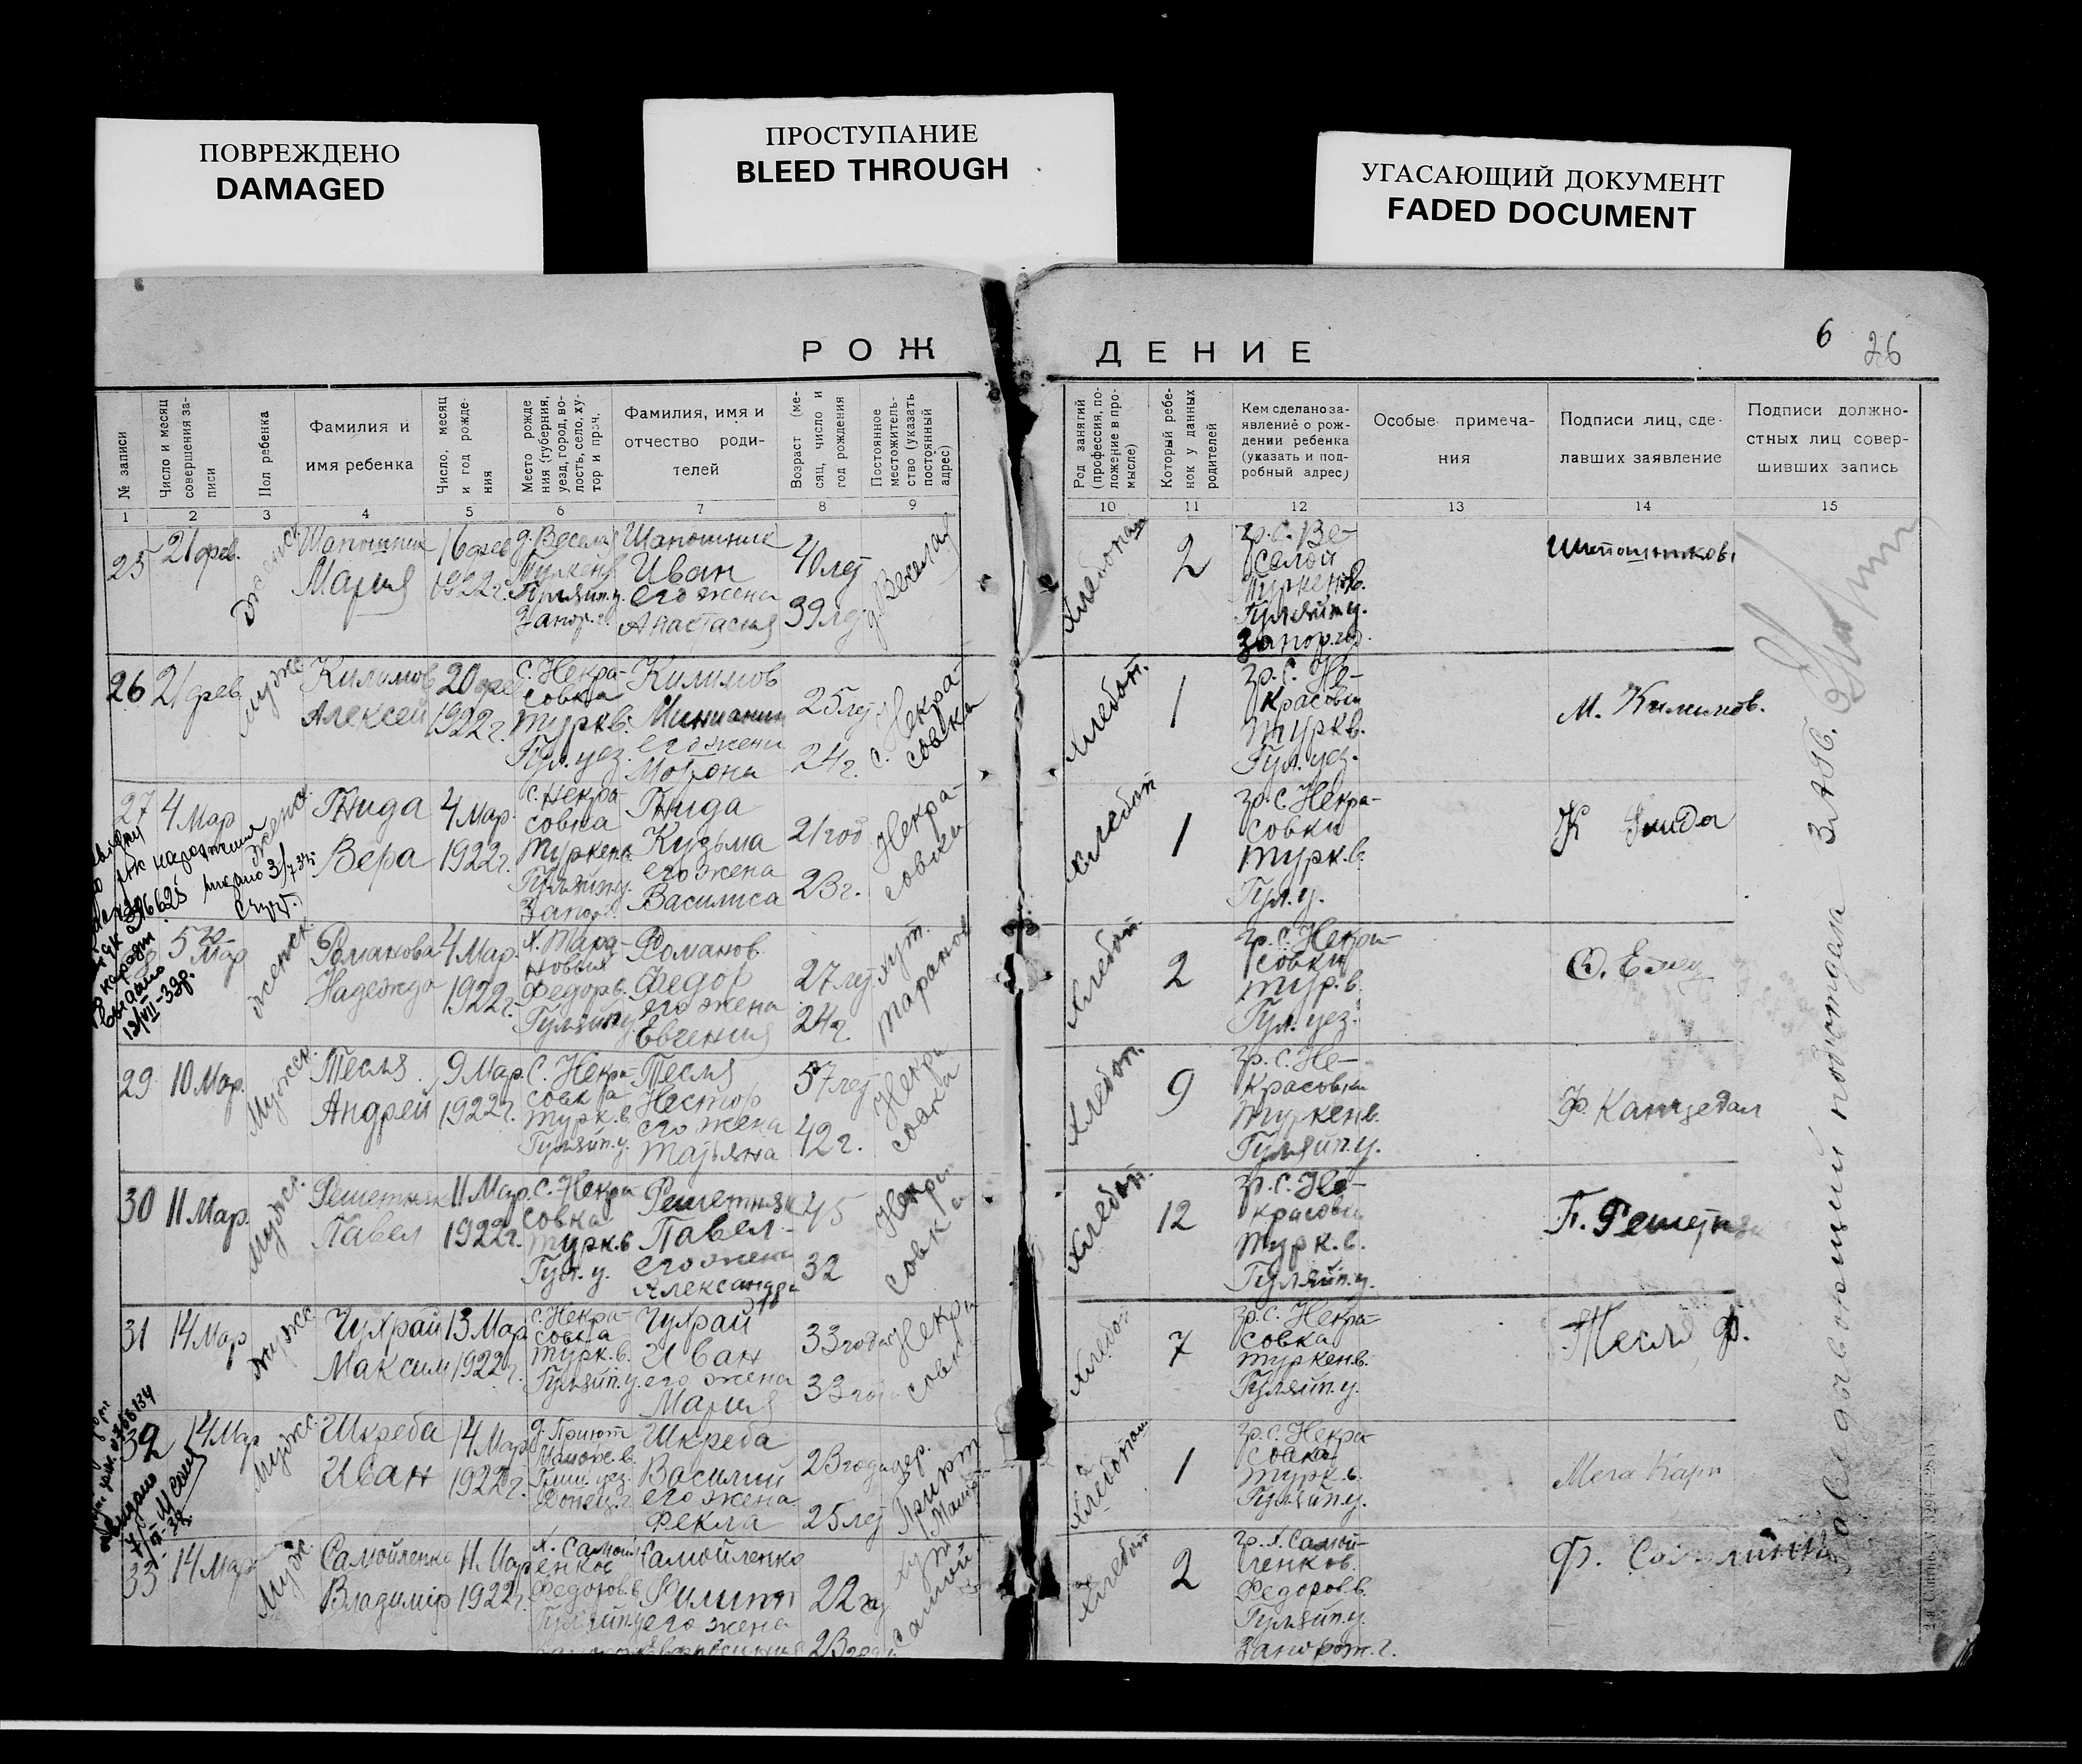 ПОВРЕЖДЕНО
DAMAGED
ПРОСТУПАНИЕ
BLEED THROUGH
УГАСАЮЩИЙ ДОКУМЕНТ
FADED DOCUMENT
6 26
РОЖ
ДЕНИЕ
№ записи
Число и месяц
совершения за-
писи
Пол ребенка
Фамилия и
имя ребенка
Число, месяц
и год рожде-
ния
Место рожде
ния (губерния,
уезд, город, во-
лость, село, ху-
тор и проч.
Фамилия, имя и
отчество роди-
телей
Возраст (ме-
сяц, число и
год рождения
Постоянное
местожитель-
ство (указать
постоянный
адрес)
Род занятий
(профессия, по-
ложение в про-
мысле)
Который ребе-
нок у данных
родителей
Кем сделано за-
явление о рож-
дении ребенка
(указать и под-
робный адрес)
Особые примеча-
ния
Подписи лиц, сде-
лавших заявление
Подписи должно-
стных лиц совер-
шивших запись
1 2 3 4 5 6 7 8 9
10 11 12 13 14 15
25
21 фев.
Женск
Шапошник
Мария
16 фев
1922 г.
д. Веселая
Туркен.в.
Гуляйп.у.
Запор.г.
Шапошник
Иван
его жена
Анастасия
40 лет
39 лет
д. Веселая
Хлебопаш
2
гр. с. Ве-
селой
Туркен.в.
Гуляйп.у.
Запор.губ.
26
21 фев
Мужс
Килимов
Алексей
20 фев
1922 г.
с. Некра-
совка
Турк.в.
Гул. уез.
Килимов
его жена
Мотрона
25 лет
24 г.
с. Некра-
совка
Хлебоп.
1
гр. с. Не-
красовки
Турк.в.
Гул. уез.
М. Килимов.
27
4 Мар
Женск
Гнида
Вера
4 Мар.
1922 г.
с. Некра-
совка
Туркен.в.
Гуляйп.у.
Запор.
Гнида
Кузьма
его жена
Василиса
21 год
23 г.
Некра-
совка
Хлебоп
1
гр. с. Некра-
совки
Турк.в.
Гул. у.
К Гнида
5го Мар
женск
Романова
Надежда
4 Мар.
1922 г.
Федор.в.
Гуляйп.у.
Романов
Федор
его жена
Евгения
27 лет
24 г.
хут.
Таранов
Хлебоп.
2
гр. с. Некра-
совки
Тур.в.
Гул. уез.
29
10 Мар.
Мужск.
Тесля
Андрей
9 Мар.
1922 г.
с. Некра-
совка
Турк.в.
Гуляйп.у.
Тесля
Нестор
его жена
Татьяна
57 лет
42 г.
Некра
совка
Хлебоп.
9
гр. с. Не-
красовки
Туркен.в.
Гуляйп.у.
30
11 Мар.
Мужск.
Решетняк
Павел
11 Мар.
1922 г.
с. Некра
совка
Турк.в
Гул. у.
Решетняк
Павел
его жена
Александра
45
32
Некра
совка
Хлебоп.
12
гр. с. Не-
красовки
Турк.в.
Гуляйп.у.
П. Решетняк
31
14 Мар
Мужс
Чухрай
Максим
13 Мар
1922 г.
с. Некра-
совка
Турк.в.
Гуляйп.у.
Чухрай
Иван
его жена
Мария
33 года
33 года
Некра
совка
Хлебоп
7
гр. с. Некра-
совка
Туркен.в.
Гуляйп.у.
Тесля Ф.
32
14 Мар
Мужс.
Шкреба
Иван
14 Мар
1922 г.
д. Приют
Донец.г.
Шкреба
Василий
его жена
Фекла
23 года
25 лет
дер.
Приют
Хлебопаш
1
гр. с. Некра-
совка
Турк.в.
Гуляйп.у.
33
14 Мар
Мужс.
Самойленко
Владимір
11 Мар
1922 г.
х. Самой
ленков
Федоров.в.
Гуляйп.у.
Самойленко
Филипп
его жена
22 г
23 года
хут
Самойл.
Хлебоп
2
гр. х. Самой-
ленков.
Федоров.в.
Гуляйп.у.
Запорож.г.
Заведывающий подотдела ЗАГС.